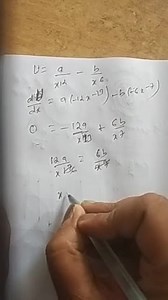 U = a/x12 - b/x6
dU/dx = a(-12x^-13) - b(-6x^-7)
0 = -12a/x13 + 6b/x7
12a/x13 = 6b/x7
x